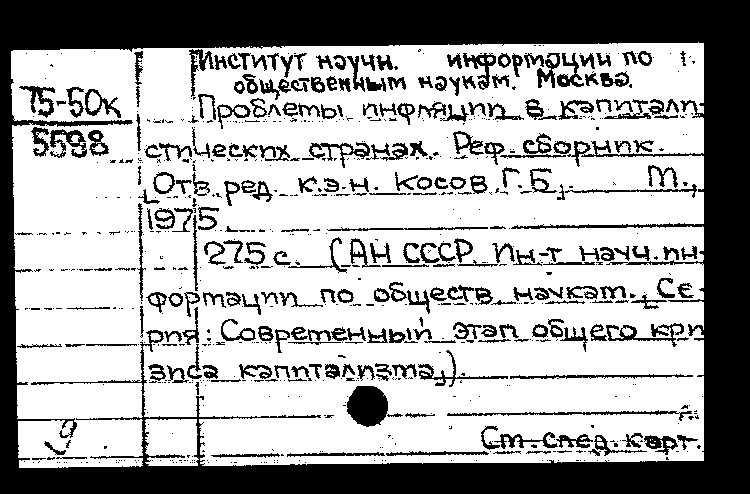 Институт научн. информации по
общественным наукам. Москва.
75-50к
5598
Проблемы инфляции в капитали-
стических странах. Реф. сборник.
[Отв. ред. к.э.н. Косов Г.Б.]. М.,
1975.
275 с. (АН СССР. Ин-т науч. ин-
формации по обществ. наукам. [Се-
рия: Современный этап общего кри-
зиса капитализма]).
9
См. след. карт.